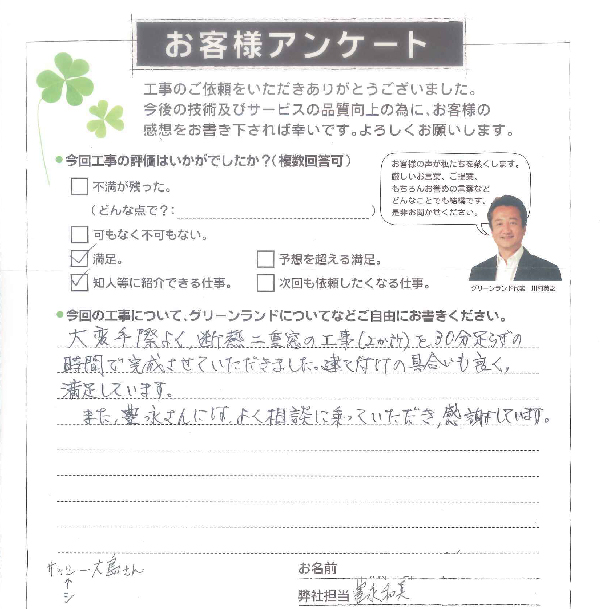 お客様アンケート
工事のご依頼をいただきありがとうございました。
今後の技術及びサービスの品質向上の為に、お客様の
感想をお書き下されば幸いです。よろしくお願いします。
●今回工事の評価はいかがでしたか？（複数回答可）
不満が残った。
（どんな点で？：　　　　）
可もなく不可もない。
満足。
予想を超える満足。
知人等に紹介できる仕事。
次回も依頼したくなる仕事。
お客様の声が私たちを熱くします。
厳しいお言葉、ご提案、
もちろんお誉めの言葉など
どんなことでも結構です。
是非お聞かせください。
グリーンランド代表
●今回の工事について、グリーンランドについてなどご自由にお書きください。
大変手際よく、断熱二重窓の工事(2か所)を30分足らずの
時間で完成させていただきました。建て付けの具合いも良く、
満足しています。
また、豊永さんには、よく相談に乗っていただき、感謝しています。
サッシー大島さん
↑
シ
お名前
弊社担当 豊永和美